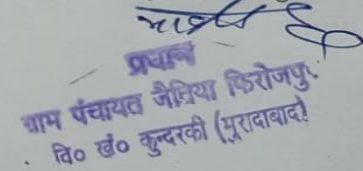 प्रधान
ग्राम पंचायत जैतिया फिरोजपुर
वि० खं० कुन्दरकी (मुरादाबाद)